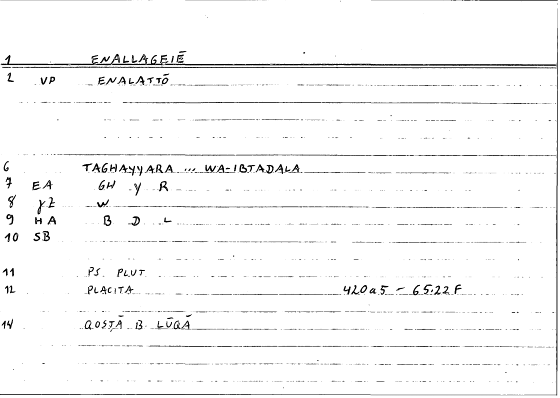 1 ENALLAGEIĒ
2 VP ENALATTŌ
6 TAGHAYYARA ... WA-IBTADALA
7 EA GH Y R
8 YZ W
9 HA B D L
10 SB
11 PS. PLUT
12 PLACITA 420a5 - 65.22 F
14 QOSṬĀ B. LŪQĀ